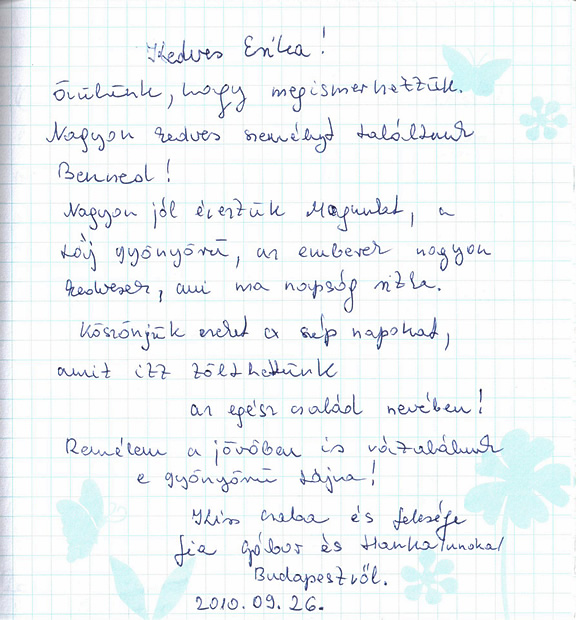 Kedves Erika!
Örülünk, hogy megismerhettük.
Nagyon kedves személyt találtunk
Benned!
Nagyon jól éreztük Magunkat, a
táj gyönyörű, az emberek nagyon
kedvesek, ami ma napság ritka.
Köszönjük ezeket a szép napokat,
amit itt tölthettünk
az egész család nevében!
Remélem a jövőben is rátalálunk
e gyönyörű tájra!
Kiss Csaba és felesége
fia Gábor és Hanka /unoka/
Budapestről.
2010.09.26.